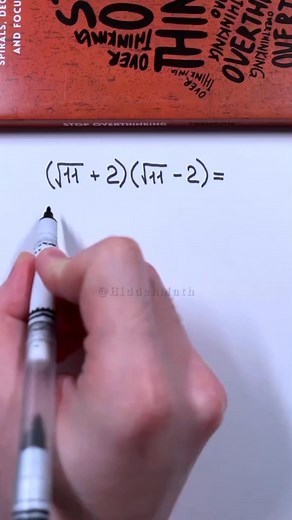 SPIRALS, DEC
AND FOCUS
OVER
THINKING
OVERTHINKING
OVER
THINKING
STOP OVERTHINKING
(√11 + 2)(√11 − 2) =
@HiddenMath